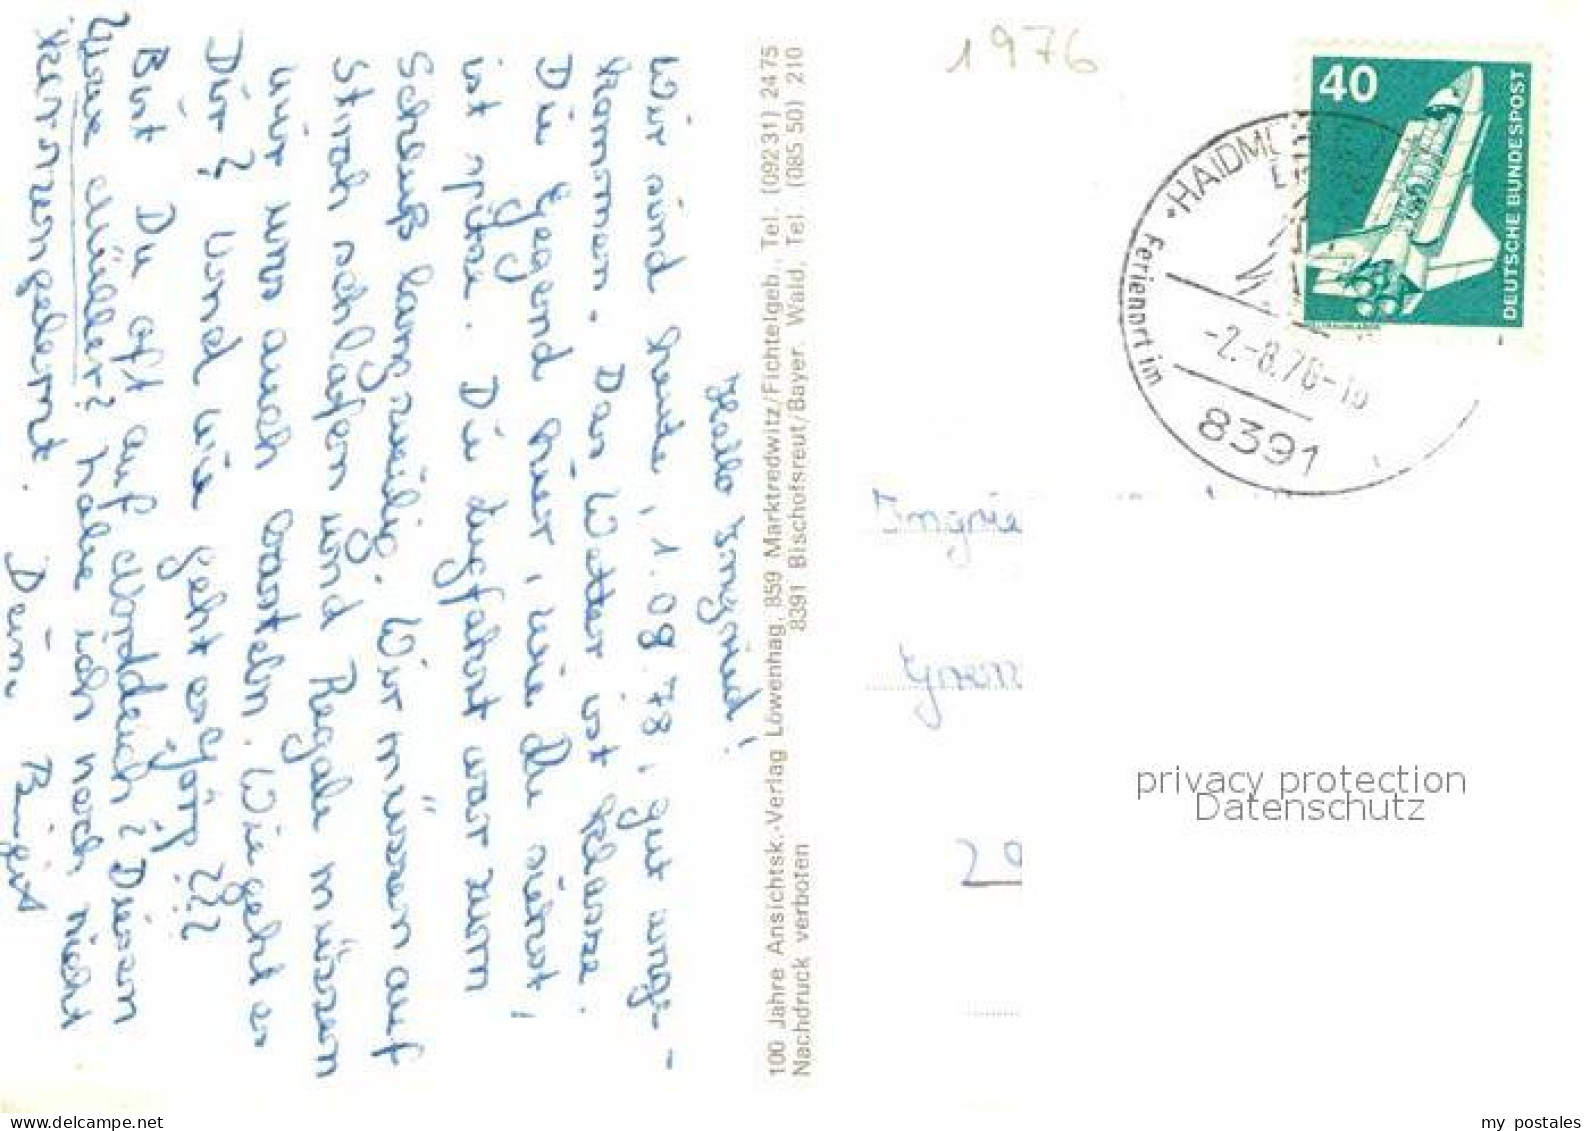 Hallo Ingrid!
Wir sind heute, 1.08.78, gut ange-
kommen. Das Wetter ist klasse.
Die Gegend hier, wie Du siehst,
ist spitze. Die Zugfahrt war zum
Schluß langweilig. Wir müssen auf
Stroh schlafen und Regale müssen
wir uns auch basteln. Wie geht es
Dir? Und wie geht es Jörg???
Bist Du oft auf Norddeich? Diesen
Uwe Müller? habe ich noch nicht
kennengelernt. Deine Birgit
100 Jahre Ansichtsk.-Verlag Löwenhag, 859 Marktredwitz/Fichtelgeb., Tel. (09231) 2475
Nachdruck verboten 8391 Bischofsreut/Bayer. Wald, Tel. (08550) 210
1976
40
DEUTSCHE BUNDESPOST
HAIDM
Ferienort im
-2.-8.78-
8391
Ingrid
29
privacy protection
Datenschutz
my postales